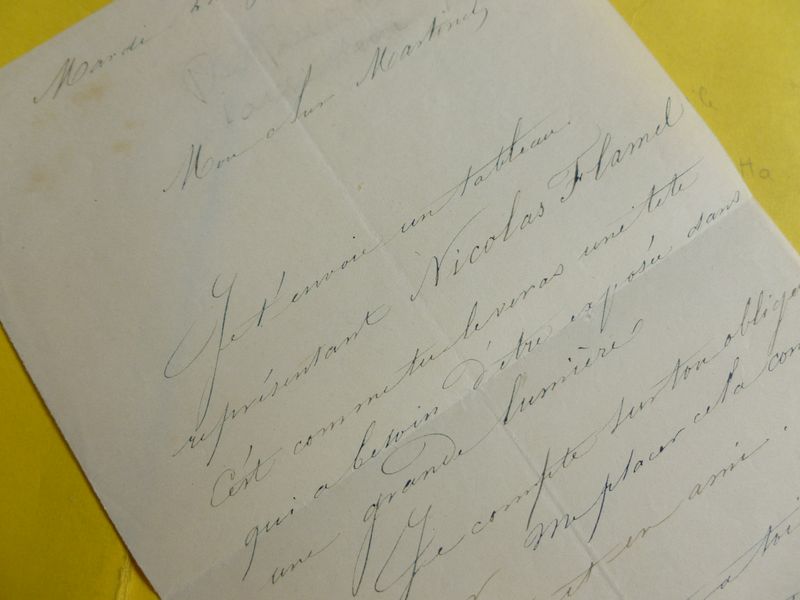 Mardi
Mon cher Martinet,
Je t'envoie un tableau.
représentant Nicolas Flamel
C'est comme tu le verras une tête
qui a besoin d'être exposée dans
une grande lumière
Je compte sur ton oblige
me placer cela com
et en ami.
a toi